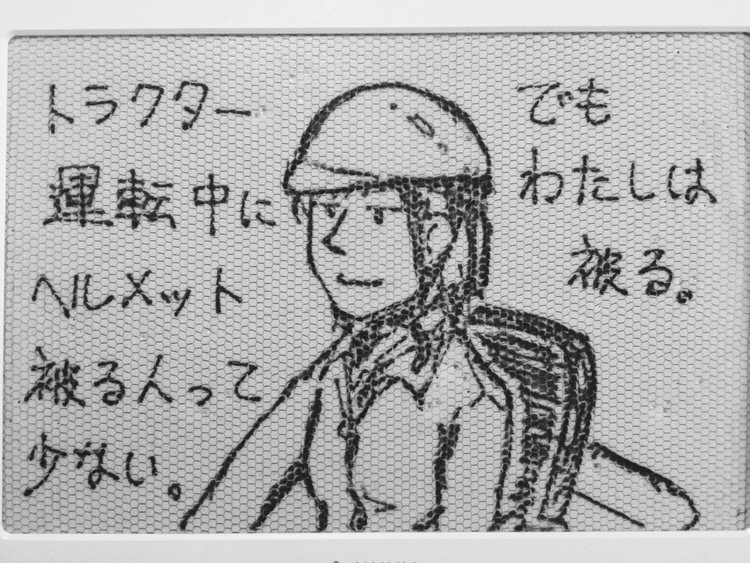 トラクター
運転中に
ヘルメット
被る人って
少ない。
でも
わたしは
被る。